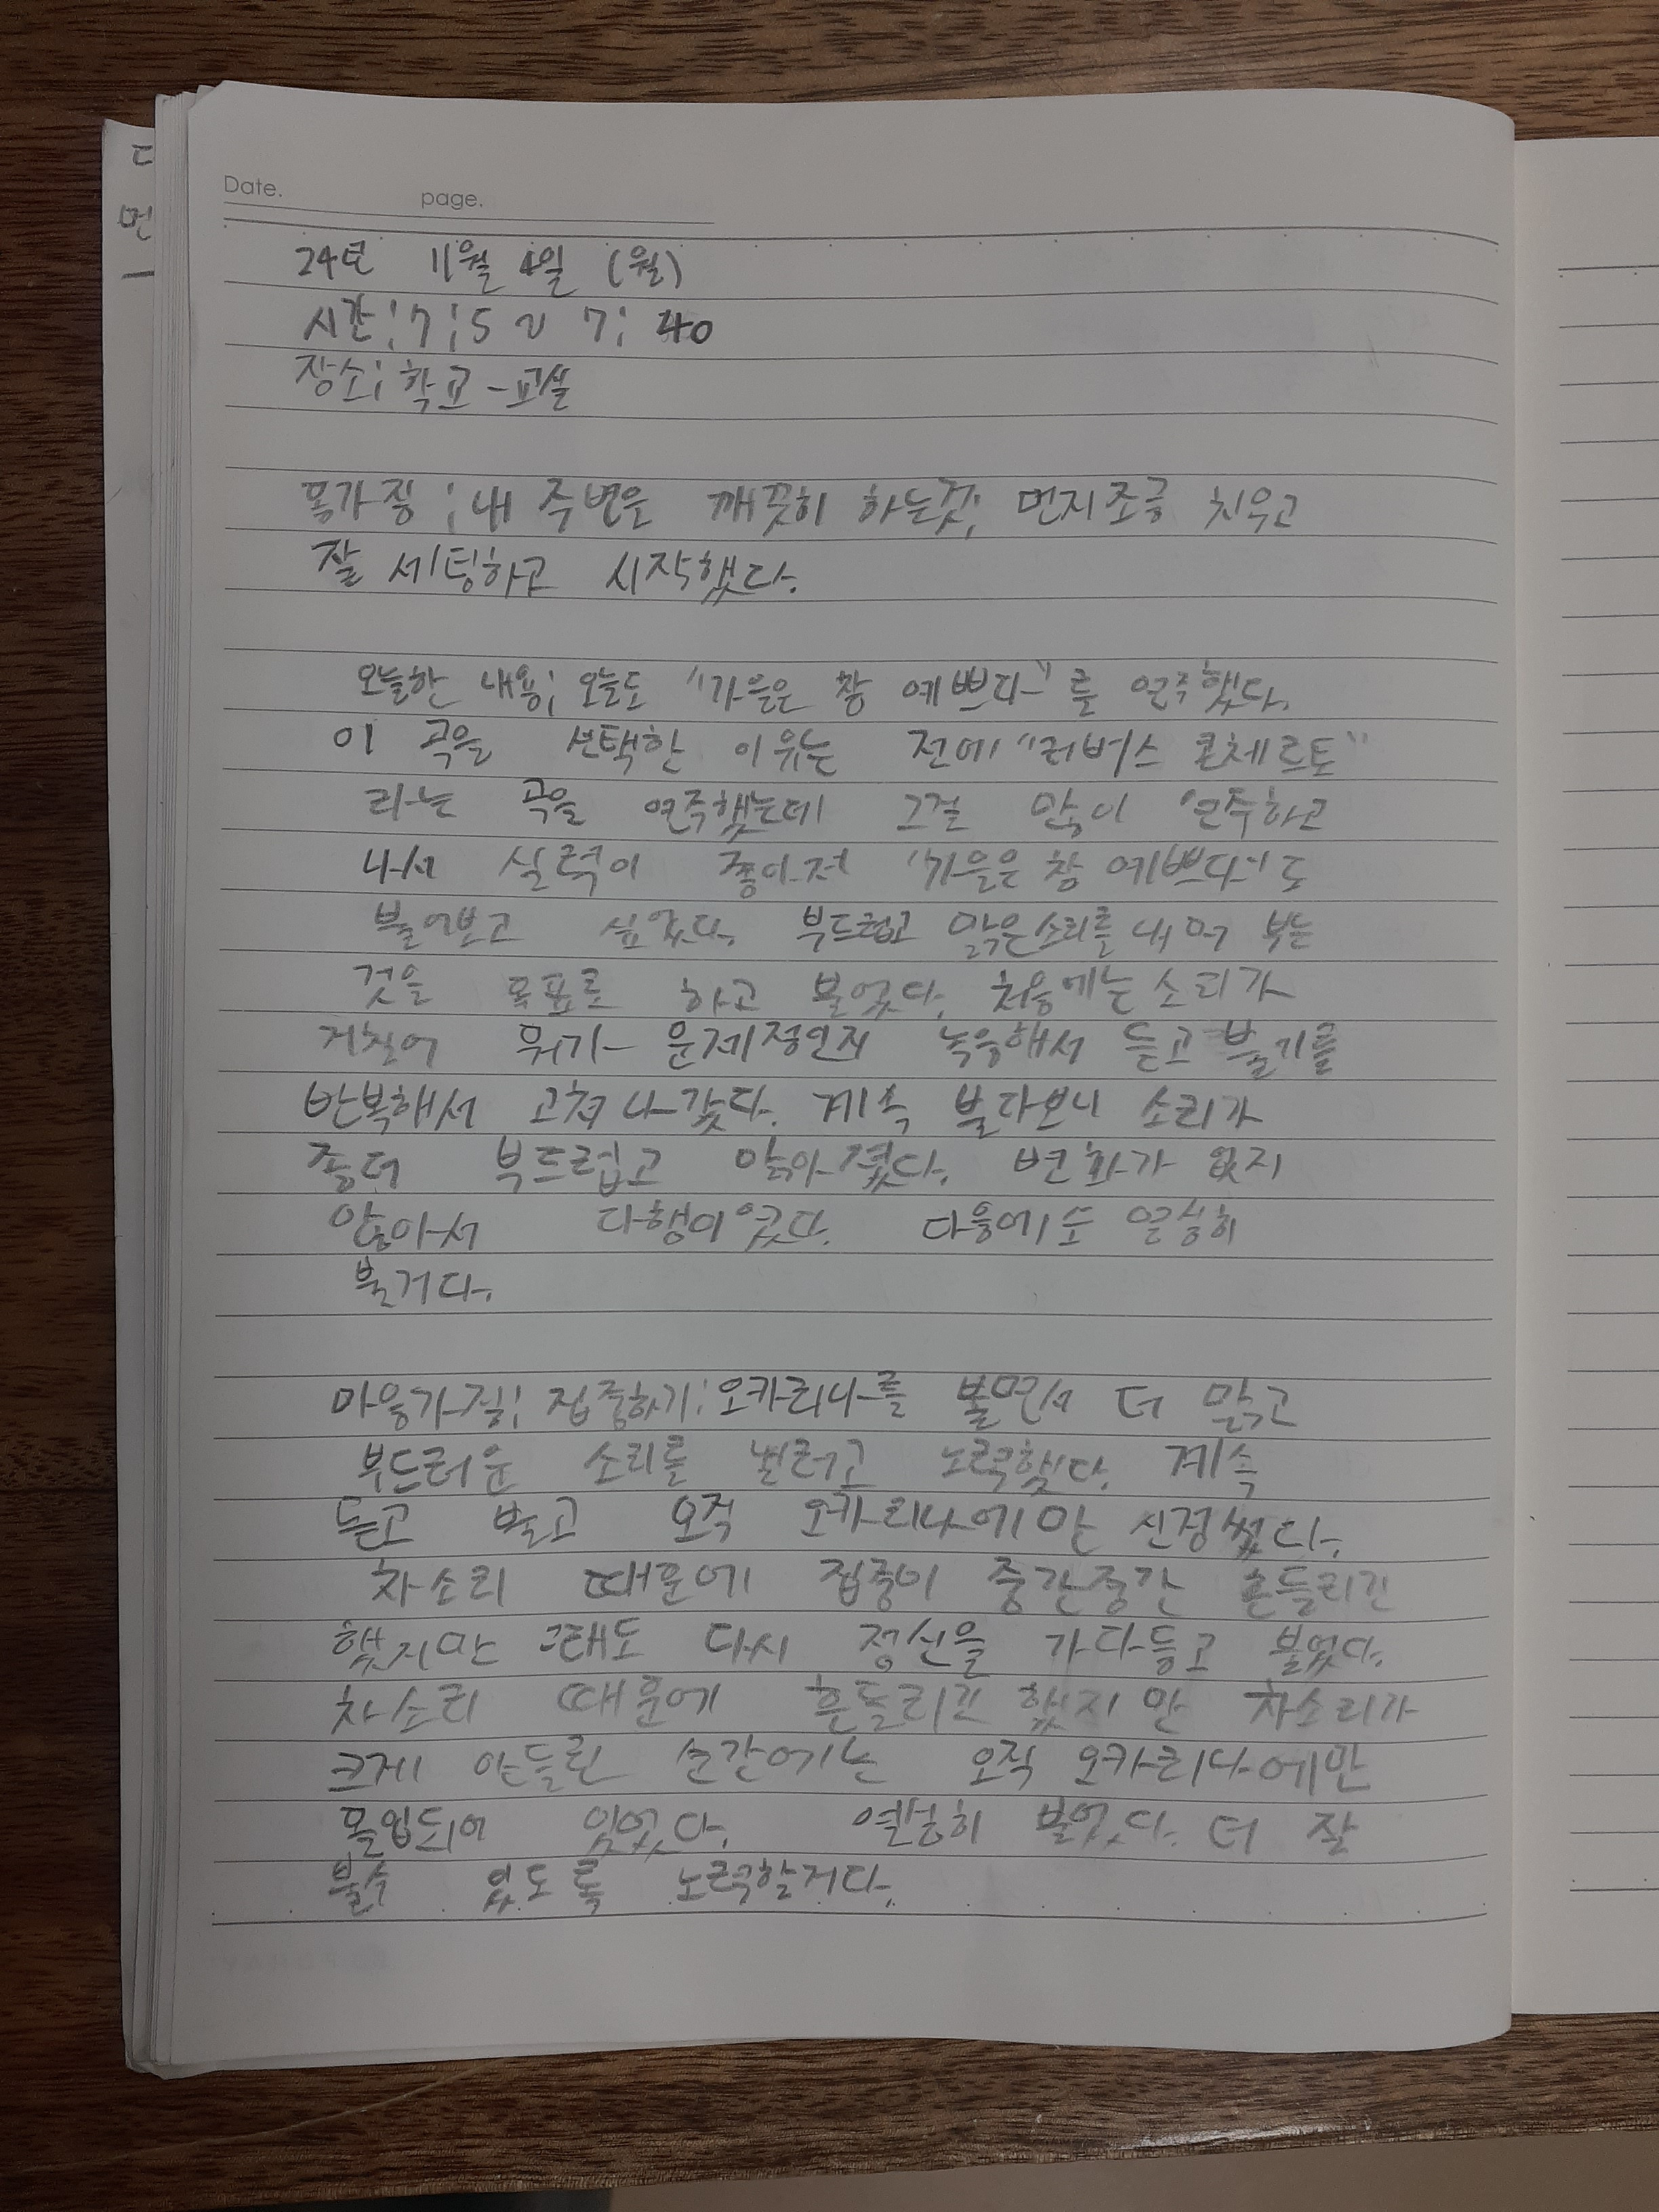 ㄷ
먼
Date. page.
24년 11월 4일 (월)
시간;7;5 ~ 7; 40
장소; 학교-교실
몸가짐;내 주변을 깨끗히 하는것, 먼지조금 치우고
잘 세팅하고 시작했다.
오늘한 내용; 오늘도 "가을은 참 예쁘다"를 연주했다.
이 곡을 선택한 이유는 전에 "리버스 콘체르토"
라는 곡을 연주했는데 그걸 많이 연주하고
나서 실력이 좋아져 "가을은 참 예쁘다"도
불어보고 싶었다. 부드럽고 맑은소리를 내며 부는
것을 목표로 하고 불었다. 처음에는 소리가
거칠어 뭐가 문제점인지 녹음해서 듣고 불기를
반복해서 고쳐나갔다. 계속 불다보니 소리가
좀더 부드럽고 맑아졌다. 변화가 없지
않아서 다행이었다. 다음에도 열심히
불거다.
마음가짐; 집중하기; 오카리나를 불면서 더 맑고
부드러운 소리를 내려고 노력했다. 계속
듣고 불고 오직 오카리나에만 신경썼다.
차소리 때문에 집중이 중간중간 흔들리긴
했지만 그래도 다시 정신을 가다듬고 불었다.
차소리 때문에 흔들리긴 했지만 차소리가
크게 안들린 순간에는 오직 오카리나에만
몰입되어 있었다. 열심히 불었다. 더 잘
불수 있도록 노력할거다.